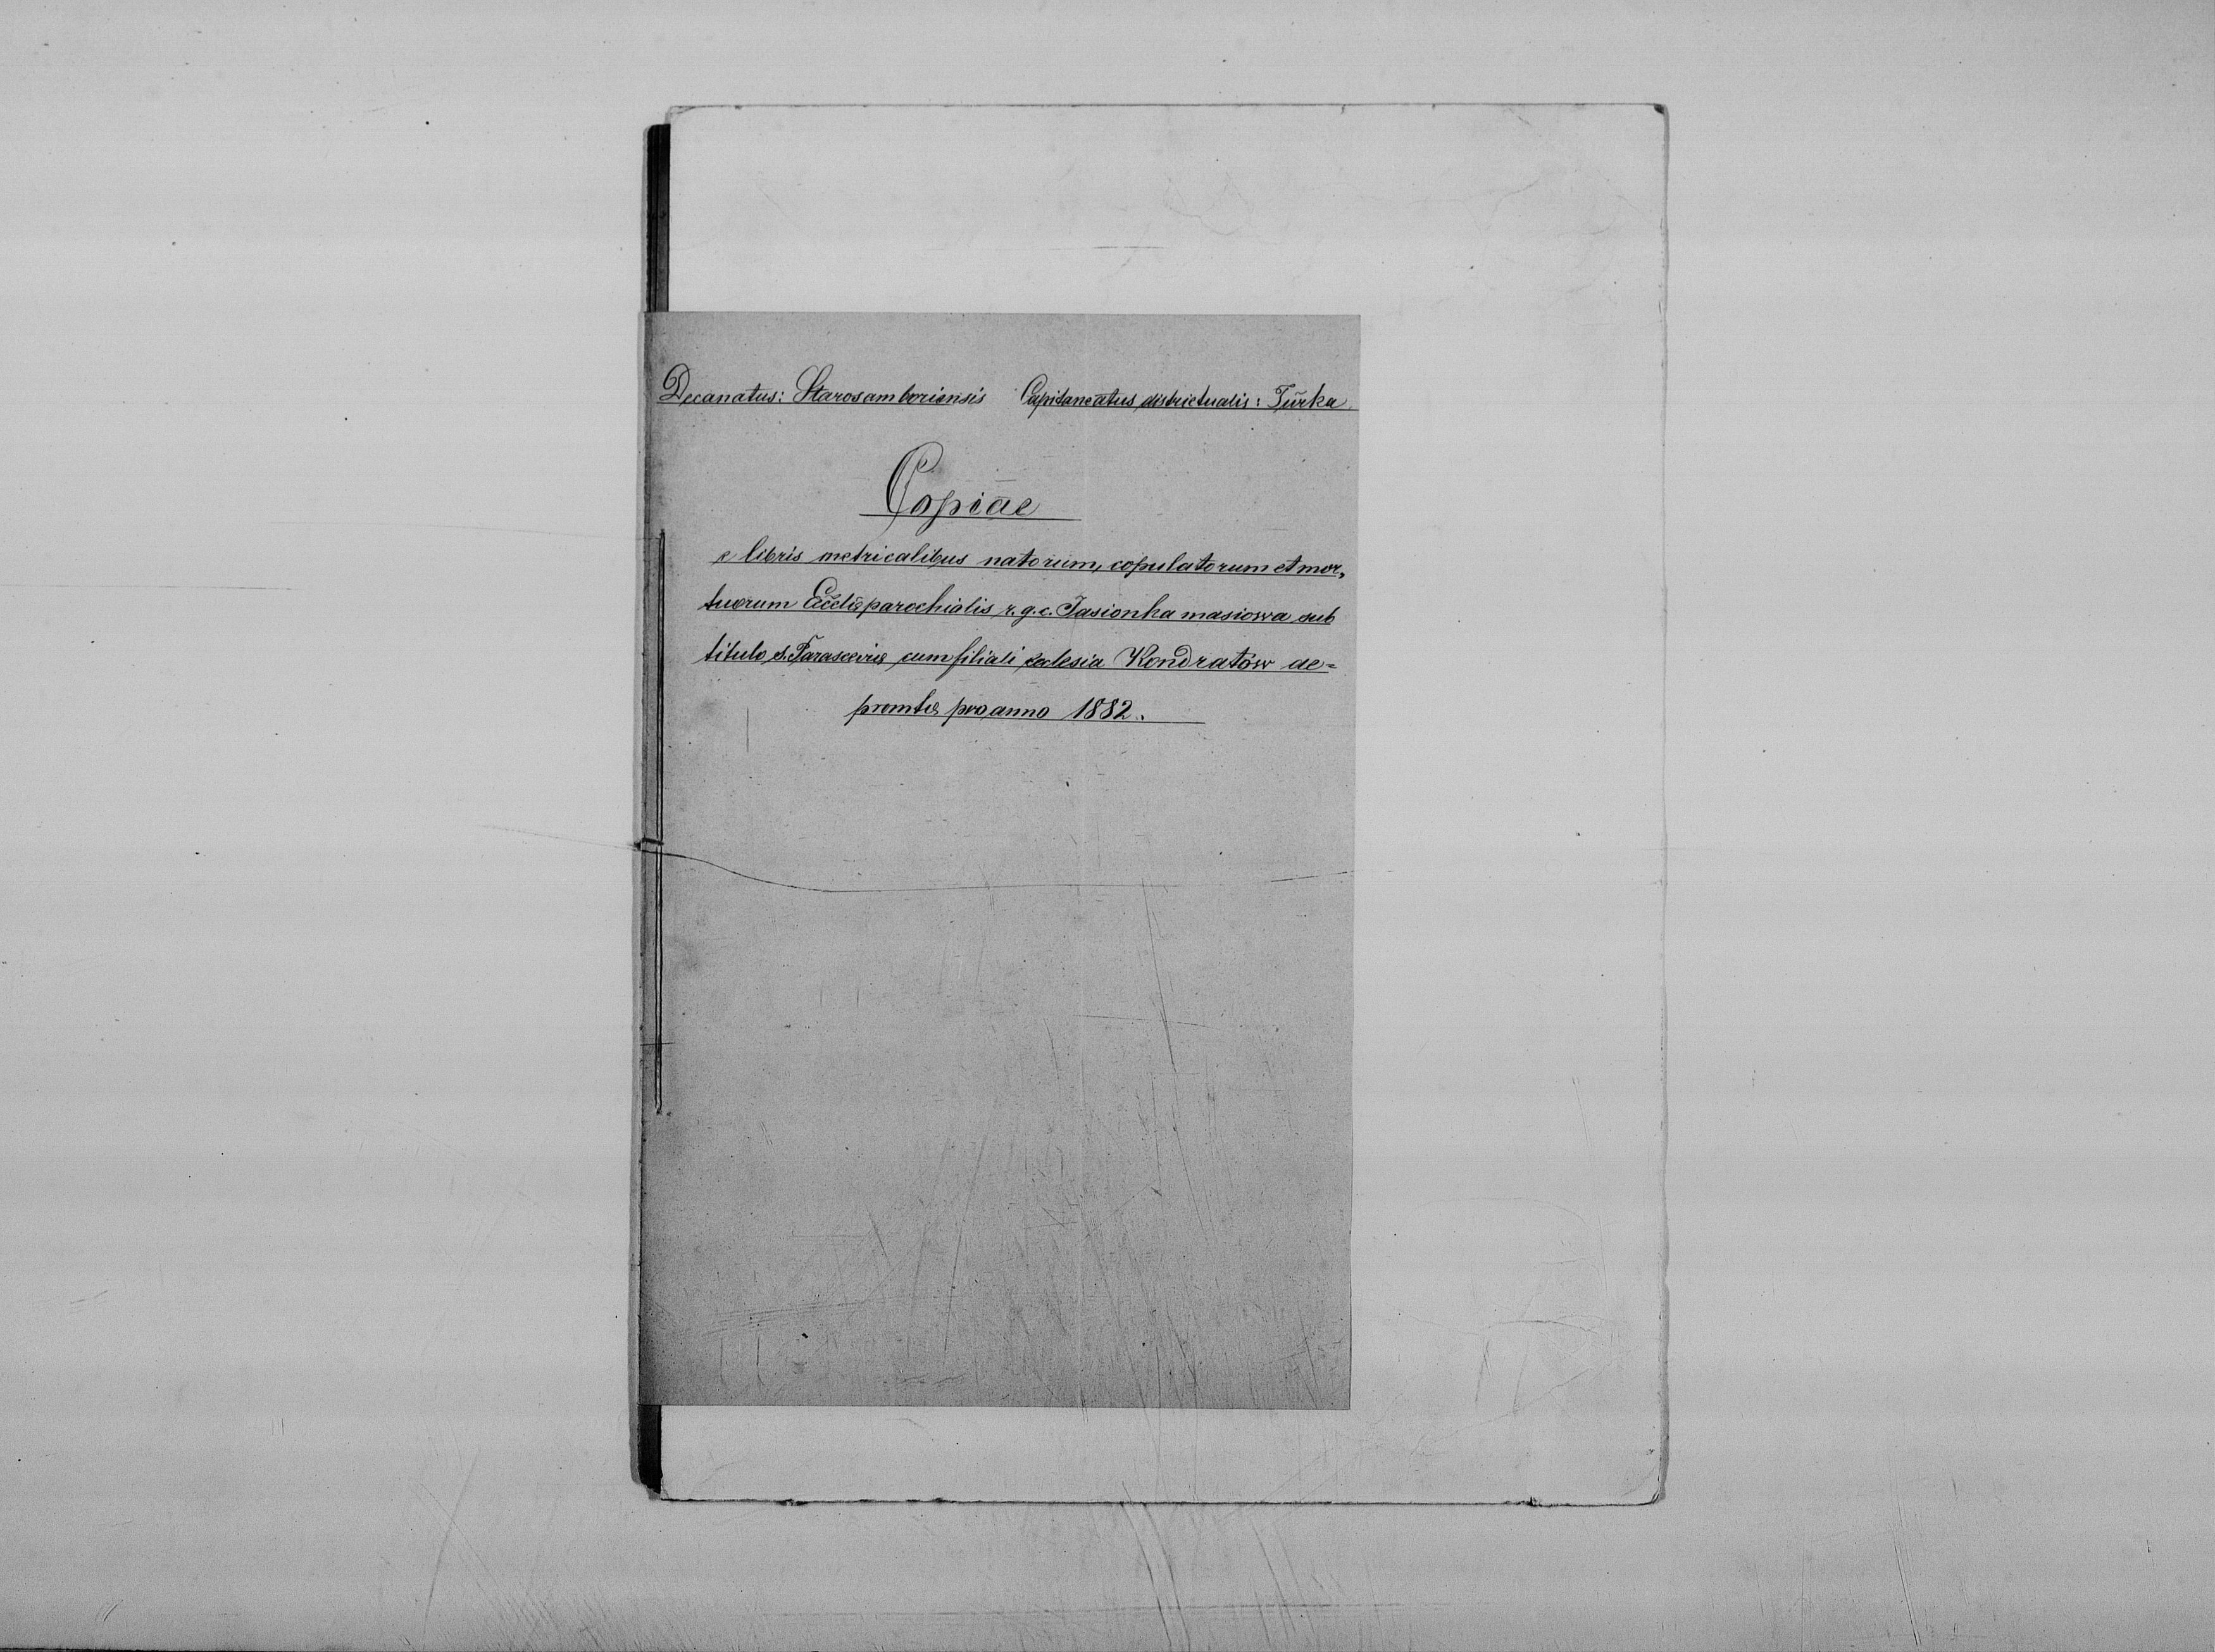 Decanatus: Starosamboriensis Capitaneatus districtualis: Turka
Copiae
e libris metricalibus natorum, copulatorum et mor„
tuorum Eccliæ parochialis r. g. c. Jasionka masiowa sub
titulo s. Parasceviæ cum filiali ecclesia Kondratów de=
promtæ pro anno 1882.